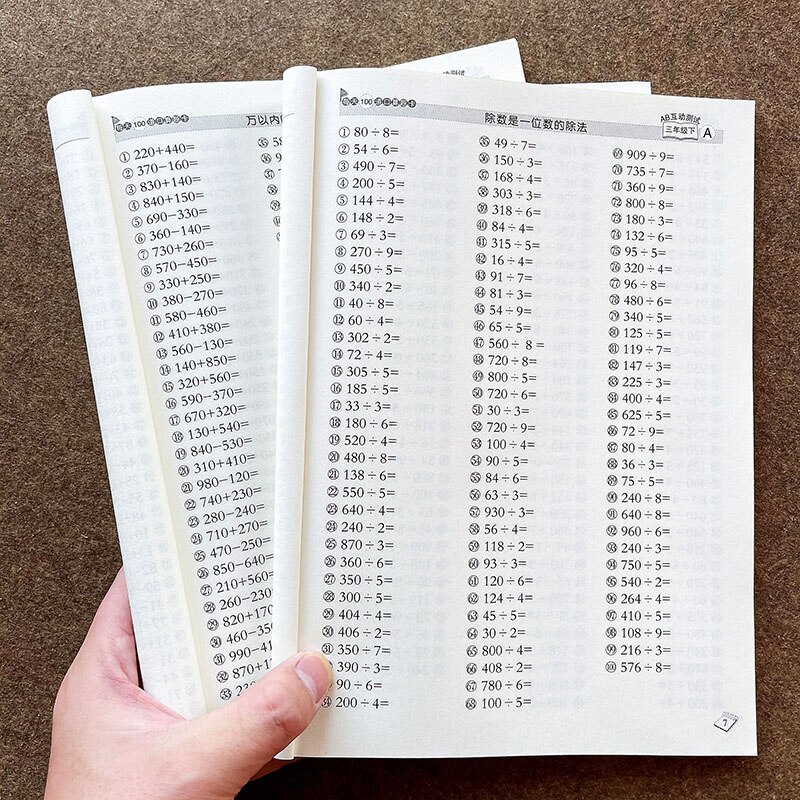 每天100道口算题卡
万以内
① 220+440=
② 370−160=
③ 830+140=
④ 840+150=
⑤ 690−330=
⑥ 360−140=
⑦ 730+260=
⑧ 570−450=
⑨ 330+250=
⑩ 380−270=
⑪ 580−460=
⑫ 410+380=
⑬ 560−130=
⑭ 140+850=
⑮ 320+560=
⑯ 590−370=
⑰ 670+320=
⑱ 130+540=
⑲ 840−530=
⑳ 310+410=
㉑ 980−120=
㉒ 740+230=
㉓ 280−240=
㉔ 710+270=
㉕ 470−250=
㉖ 850−640=
㉗ 210+560=
㉘ 260−230=
㉙ 820+170
㉚ 460−350
㉛ 990−41
㉜ 870+1
㉝ 23
㉟ 58
㊱ 9
㊲
㊳
㊴
㊵
每天100道口算题卡
除数是一位数的除法
AB互动测试
三年级下 A
① 80÷8=
② 54÷6=
③ 490÷7=
④ 200÷5=
⑤ 144÷4=
⑥ 148÷2=
⑦ 69÷3=
⑧ 270÷9=
⑨ 450÷5=
⑩ 340÷2=
⑪ 40÷8=
⑫ 60÷4=
⑬ 302÷2=
⑭ 72÷4=
⑮ 305÷5=
⑯ 185÷5=
⑰ 33÷3=
⑱ 180÷6=
⑲ 520÷4=
⑳ 480÷8=
㉑ 138÷6=
㉒ 550÷5=
㉓ 640÷4=
㉔ 240÷2=
㉕ 870÷3=
㉖ 360÷6=
㉗ 350÷5=
㉘ 300÷5=
㉙ 404÷4=
㉚ 406÷2=
㉛ 350÷7=
390÷3=
90÷6=
㉞ 200÷4=
㉟ 49÷7=
㊱ 150÷3=
㊲ 168÷4=
㊳ 303÷3=
㊴ 318÷6=
㊵ 84÷4=
㊶ 315÷5=
㊷ 16÷4=
㊸ 91÷7=
㊹ 81÷3=
㊺ 54÷9=
㊻ 65÷5=
㊼ 560÷8=
㊽ 720÷8=
㊾ 800÷5=
㊿ 720÷6=
51 30÷3=
52 720÷9=
53 100÷4=
54 90÷5=
55 84÷6=
56 63÷3=
57 930÷3=
58 56÷4=
59 118÷2=
60 93÷3=
61 120÷6=
62 124÷4=
63 45÷5=
64 30÷2=
65 800÷4=
66 408÷2=
67 780÷6=
68 100÷5=
69 909÷9=
70 735÷7=
71 360÷9=
72 800÷8=
73 180÷3=
74 132÷6=
75 95÷5=
76 320÷4=
77 96÷8=
78 480÷6=
79 340÷5=
80 125÷5=
81 119÷7=
82 147÷3=
83 225÷3=
84 400÷4=
85 625÷5=
86 72÷9=
87 80÷4=
88 36÷3=
89 75÷5=
90 240÷8=
91 640÷8=
92 960÷6=
93 240÷3=
94 750÷5=
95 540÷2=
96 264÷4=
97 410÷5=
98 108÷9=
99 216÷3=
100 576÷8=
7